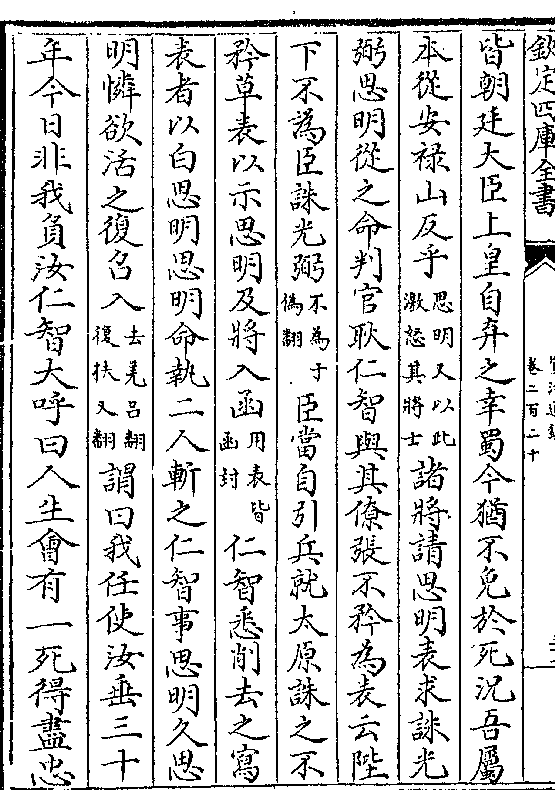 欽定四庫全書
卷二百二十
皆朝廷大臣上皇自弃之幸蜀今猶不免於死況吾屬
本從安禄山反乎思明又以此激怒其將士諸將請思明表求誅光
弼思明從之命判官耿仁智與其僚張不矜為表云陛
下不為臣誅光弼不為于偽翻臣當自引兵就太原誅之不
矜草表以示思明及將入函用表皆函封仁智悉削去之寫
表者以白思明思明命執二人斬之仁智事思明久思
明憐欲活之復召入去羌呂翻復扶又翻謂曰我任使汝垂三十
年今日非我負汝仁智大呼曰人生會有一死得盡忠